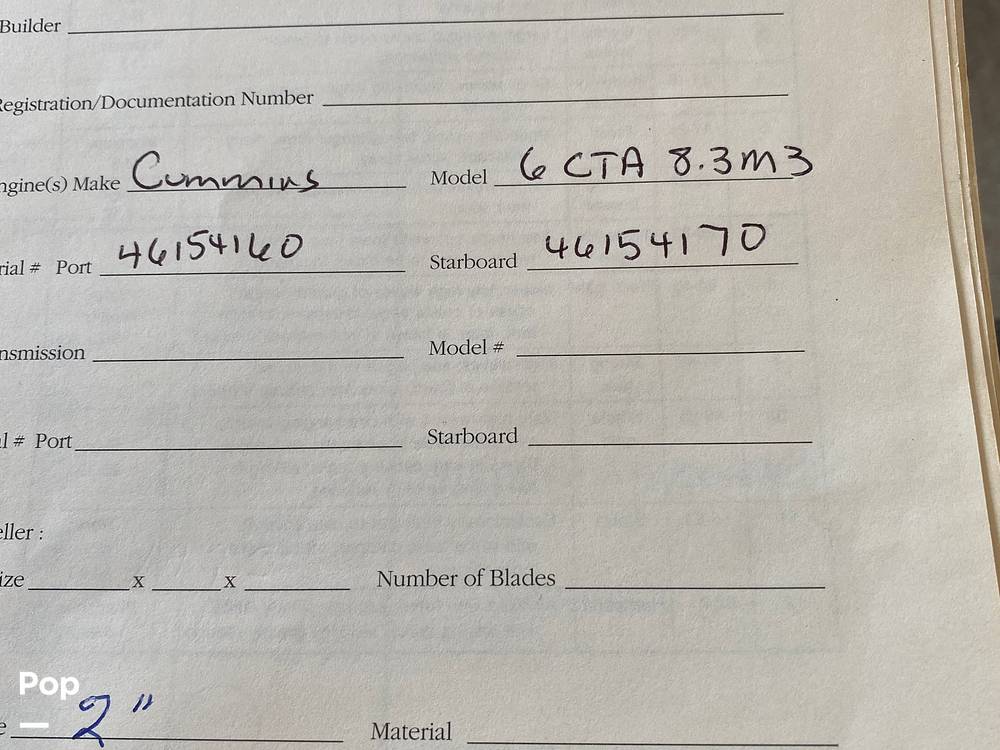 Builder
Registration/Documentation Number
ngine(s) Make Cummins Model 6 CTA 8.3 M3
rial # Port 46154160 Starboard 46154170
nsmission Model #
l # Port Starboard
eller :
ize x x Number of Blades
e 2" Material
Pop